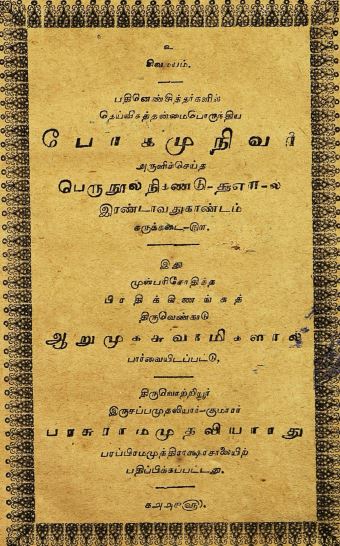 உ
சிவமயம்.
பதினெண்சித்தர்களில்
தெய்வீகத்தன்மைபொருந்திய
போகமுநிவர்
அருளிச்செய்த
இரண்டாவதுகாண்டம்
இது
முன்பரிசோதித்த
பிரதிக்கிணங்கத்
திருவெண்காடு
ஆறுமுகசுவாமிகளால்
பார்வையிடப்பட்டு,
திருவொற்றியூர்
இருசப்பமுதலியார்-குமாரர்
பரசுராமமுதலியாரது
பரப்பிரமமுத்திராக்ஷரசாலையிற்
பதிப்பிக்கப்பட்டது.